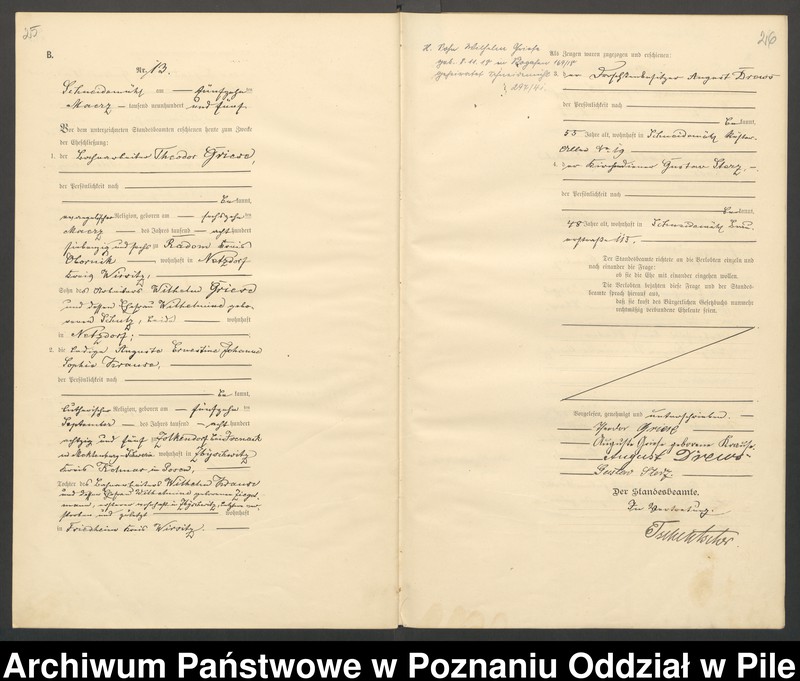 255
B.
Nr. 13.
Schneidemühl am fünfzehnten
Maerz tausend neunhundert und fünf.
Vor dem unterzeichneten Standesbeamten erschienen heute zum Zwecke
der Eheschließung:
1. der Bahnarbeiter Theodor Griese,
der Persönlichkeit nach
be kannt,
evangelischer Religion, geboren am sechszehnten
Maerz des Jahres tausend acht hundert
siebenzig und sechs zu Radom Kreis
Obornik wohnhaft in Netzdorf
Kreis Wirsitz,
Sohn des Arbeiters Wilhelm Griese
und dessen Ehefrau Wilhelmine gebo-
renen Schulz, beide wohnhaft
in Netzdorf;
2. die ledige Auguste Ernestine Johanna
Sophie Krause,
der Persönlichkeit nach
be kannt,
lutherischer Religion, geboren am fünfzehnten
September des Jahres tausend acht hundert
achtzig und fünf
in Mecklenburg-Schwerin wohnhaft in
Kreis Kolmar in Posen,
Tochter des Bahnarbeiters Wilhelm Krause
und dessen Ehefrau Wilhelmine geborenen
storben und zuletzt wohnhaft
in Friedheim Kreis Wirsitz.
256
Sohn Wilhelm Griese
geb. in Rogasen
Als Zeugen waren zugezogen und erschienen:
3. der August Drews
der Persönlichkeit nach
be kannt,
55 Jahre alt, wohnhaft in Schneidemühl
Allee No. 19
4. der Kirchendiener Gustav Sterz,
der Persönlichkeit nach
be kannt,
48 Jahre alt, wohnhaft in Schneidemühl
straße 115.
Der Standesbeamte richtete an die Verlobten einzeln und
nach einander die Frage:
ob sie die Ehe mit einander eingehen wollen.
Die Verlobten bejahten diese Frage und der Standes-
beamte sprach hierauf aus,
daß sie kraft des Bürgerlichen Gesetzbuchs nunmehr
rechtmäßig verbundene Eheleute seien.
Vorgelesen, genehmigt und unterschrieben.
Theodor Griese
Auguste Griese geborene Krause.
August Drews
Gustav Sterz
Der Standesbeamte.
In Vertretung:
Archiwum Państwowe w Poznaniu Oddział w Pile